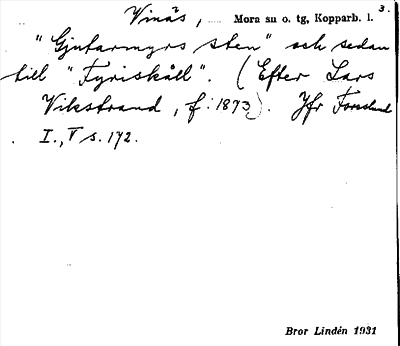 3.
Vinäs, Mora su o. tg, Kopparb. l.
"Gjutarmyrs sten" och sedan
till "Fyriskåll". (Efter Lars
Vikstrand, f. 1873). Jfr Forslund
I., V s. 172.
Bror Lindén 1931